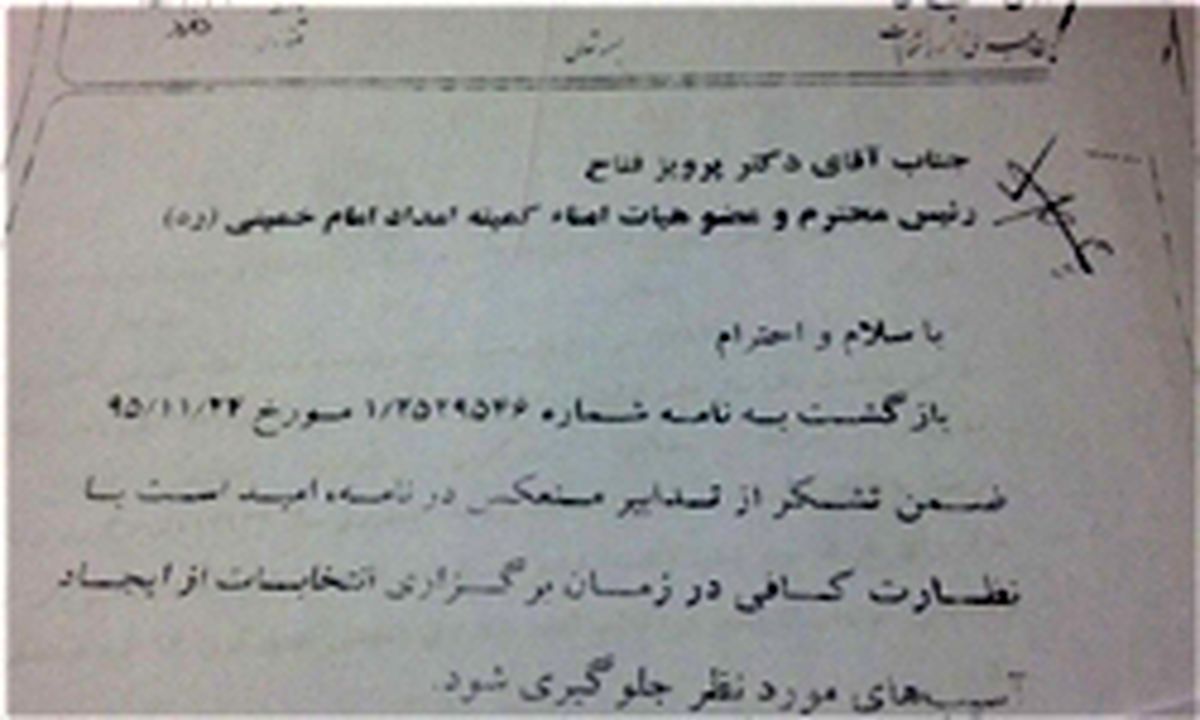 جناب آقای دکتر پرویز فتاح
رئیس محترم و عضو هیات امناء کمیته امداد امام خمینی (ره)
با سلام و احترام
بازگشت به نامه شماره ۱/۲۵۲۹۵۴۶ مورخ ۹۵/۱۱/۲۴
ضمن تشکر از تدابیر منعکس در نامه، امید است با
نظارت کافی در زمان برگزاری انتخابات از ایجاد
آسیب‌های مورد نظر جلوگیری شود.